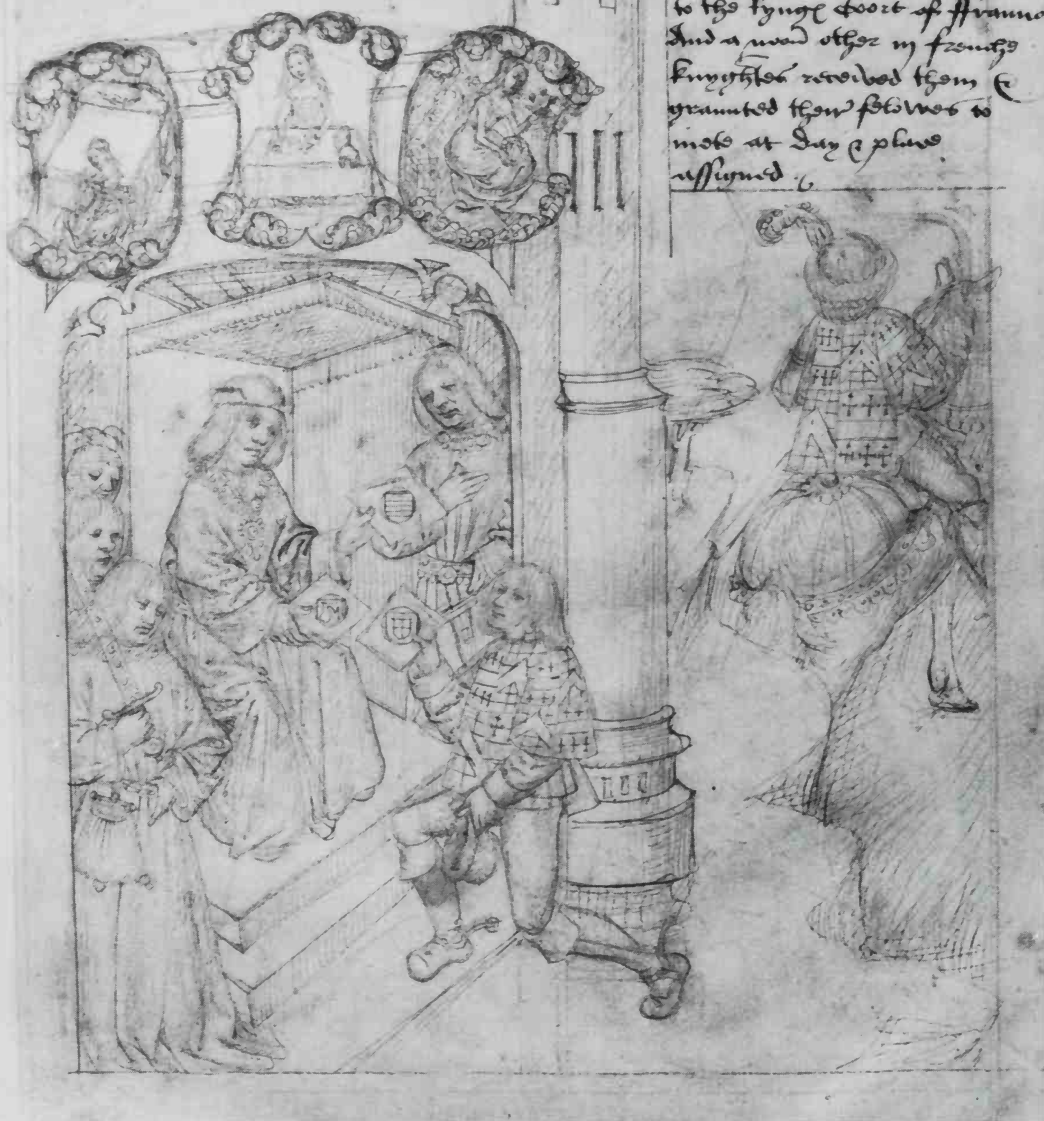 to the kyngs Coort of ffraunc
And a noon other in frenche
knyghtes received them &
graunted their felowes to
mete at day & place
assigned
III